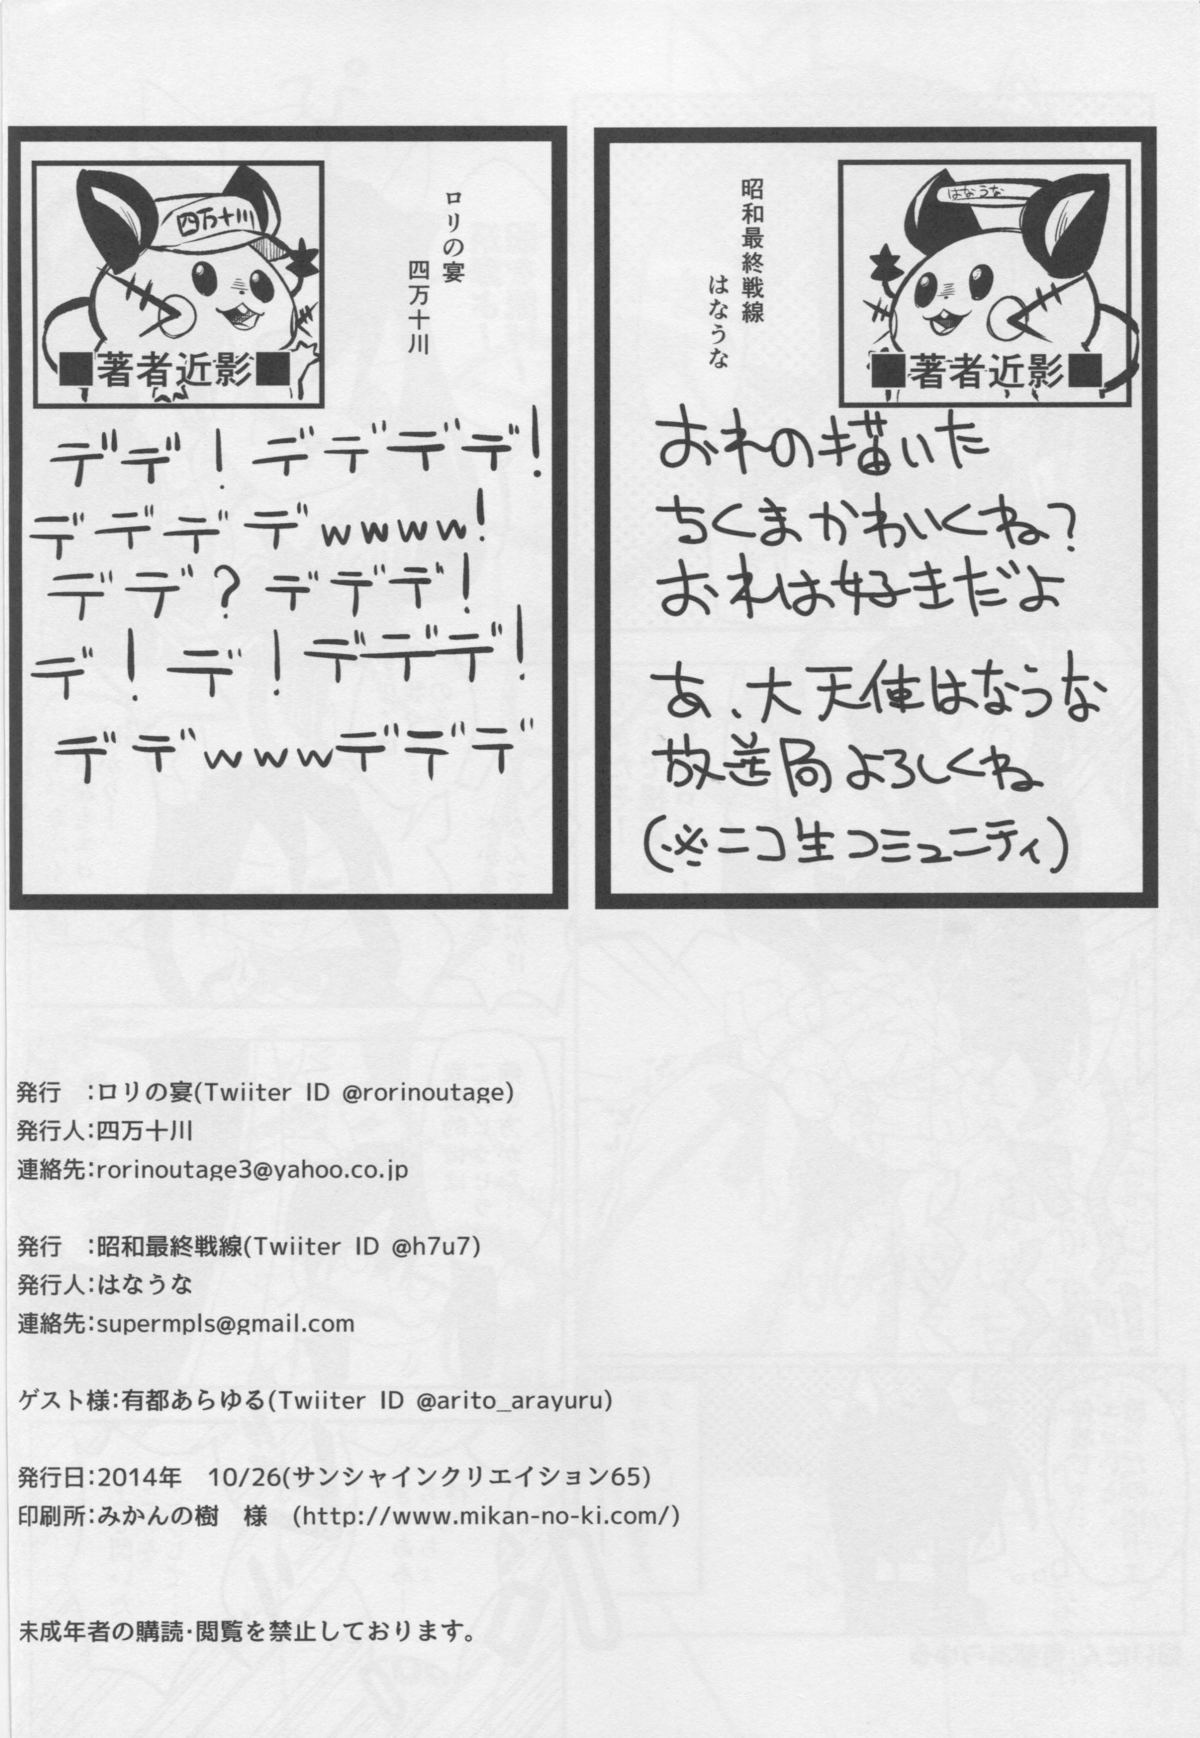 昭和最終戦線
はなうな
はなうな
■著者近影■
おれの描いた
ちくまかわいくね?
おれは好きだよ
あ、大天使はなうな
放送局よろしくね
(※ニコ生コミュニティ)
ロリの宴
四万十川
四万十川
■著者近影■
デデ! デデデデ!
デデデデwwww!
デデ? デデデ!
デ! デ! デデデ!
デデwwwデデデ
発行 :ロリの宴(Twiiter ID @rorinoutage)
発行人:四万十川
連絡先:rorinoutage3@yahoo.co.jp
発行 :昭和最終戦線(Twiiter ID @h7u7)
発行人:はなうな
連絡先:supermpls@gmail.com
ゲスト様:有都あらゆる(Twiiter ID @arito_arayuru)
発行日:2014年 10/26(サンシャインクリエイション65)
印刷所:みかんの樹 様 (http://www.mikan-no-ki.com/)
未成年者の購読・閲覧を禁止しております。